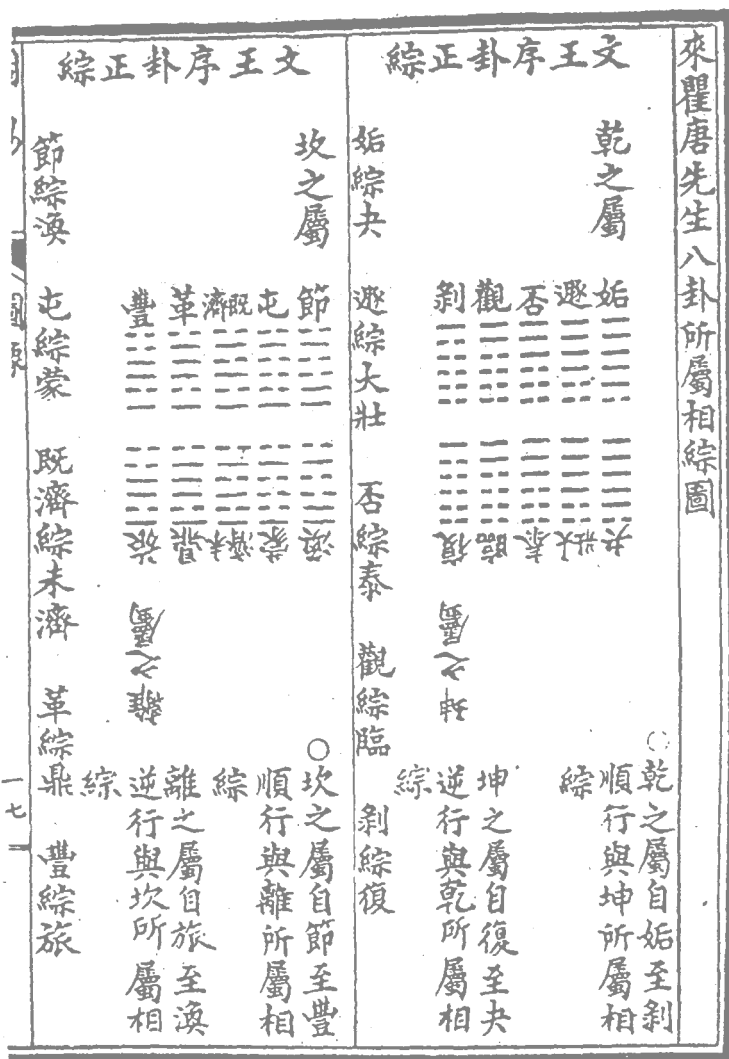 來瞿唐先生八卦所屬相綜圖
文王序卦正綜
乾之屬
姤
遯
否
觀
剝
夬
大壯
泰
臨
復
坤之屬
○乾之屬自姤至剝
順行與坤所屬相
綜
坤之屬自復至夬
逆行與乾所屬相
綜
姤綜夬 遯綜大壯 否綜泰 觀綜臨 剝綜復
文王序卦正綜
坎之屬
節
屯
既濟
革
豐
渙
蒙
未濟
鼎
旅
離之屬
○坎之屬自節至豐
順行與離所屬相
綜
離之屬自旅至渙
逆行與坎所屬相
綜
節綜渙 屯綜蒙 既濟綜未濟 革綜鼎 豐綜旅
一七